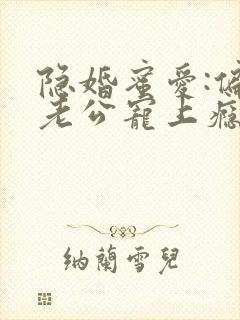 隐婚蜜爱:偏
老公宠上瘾
纳兰雪儿